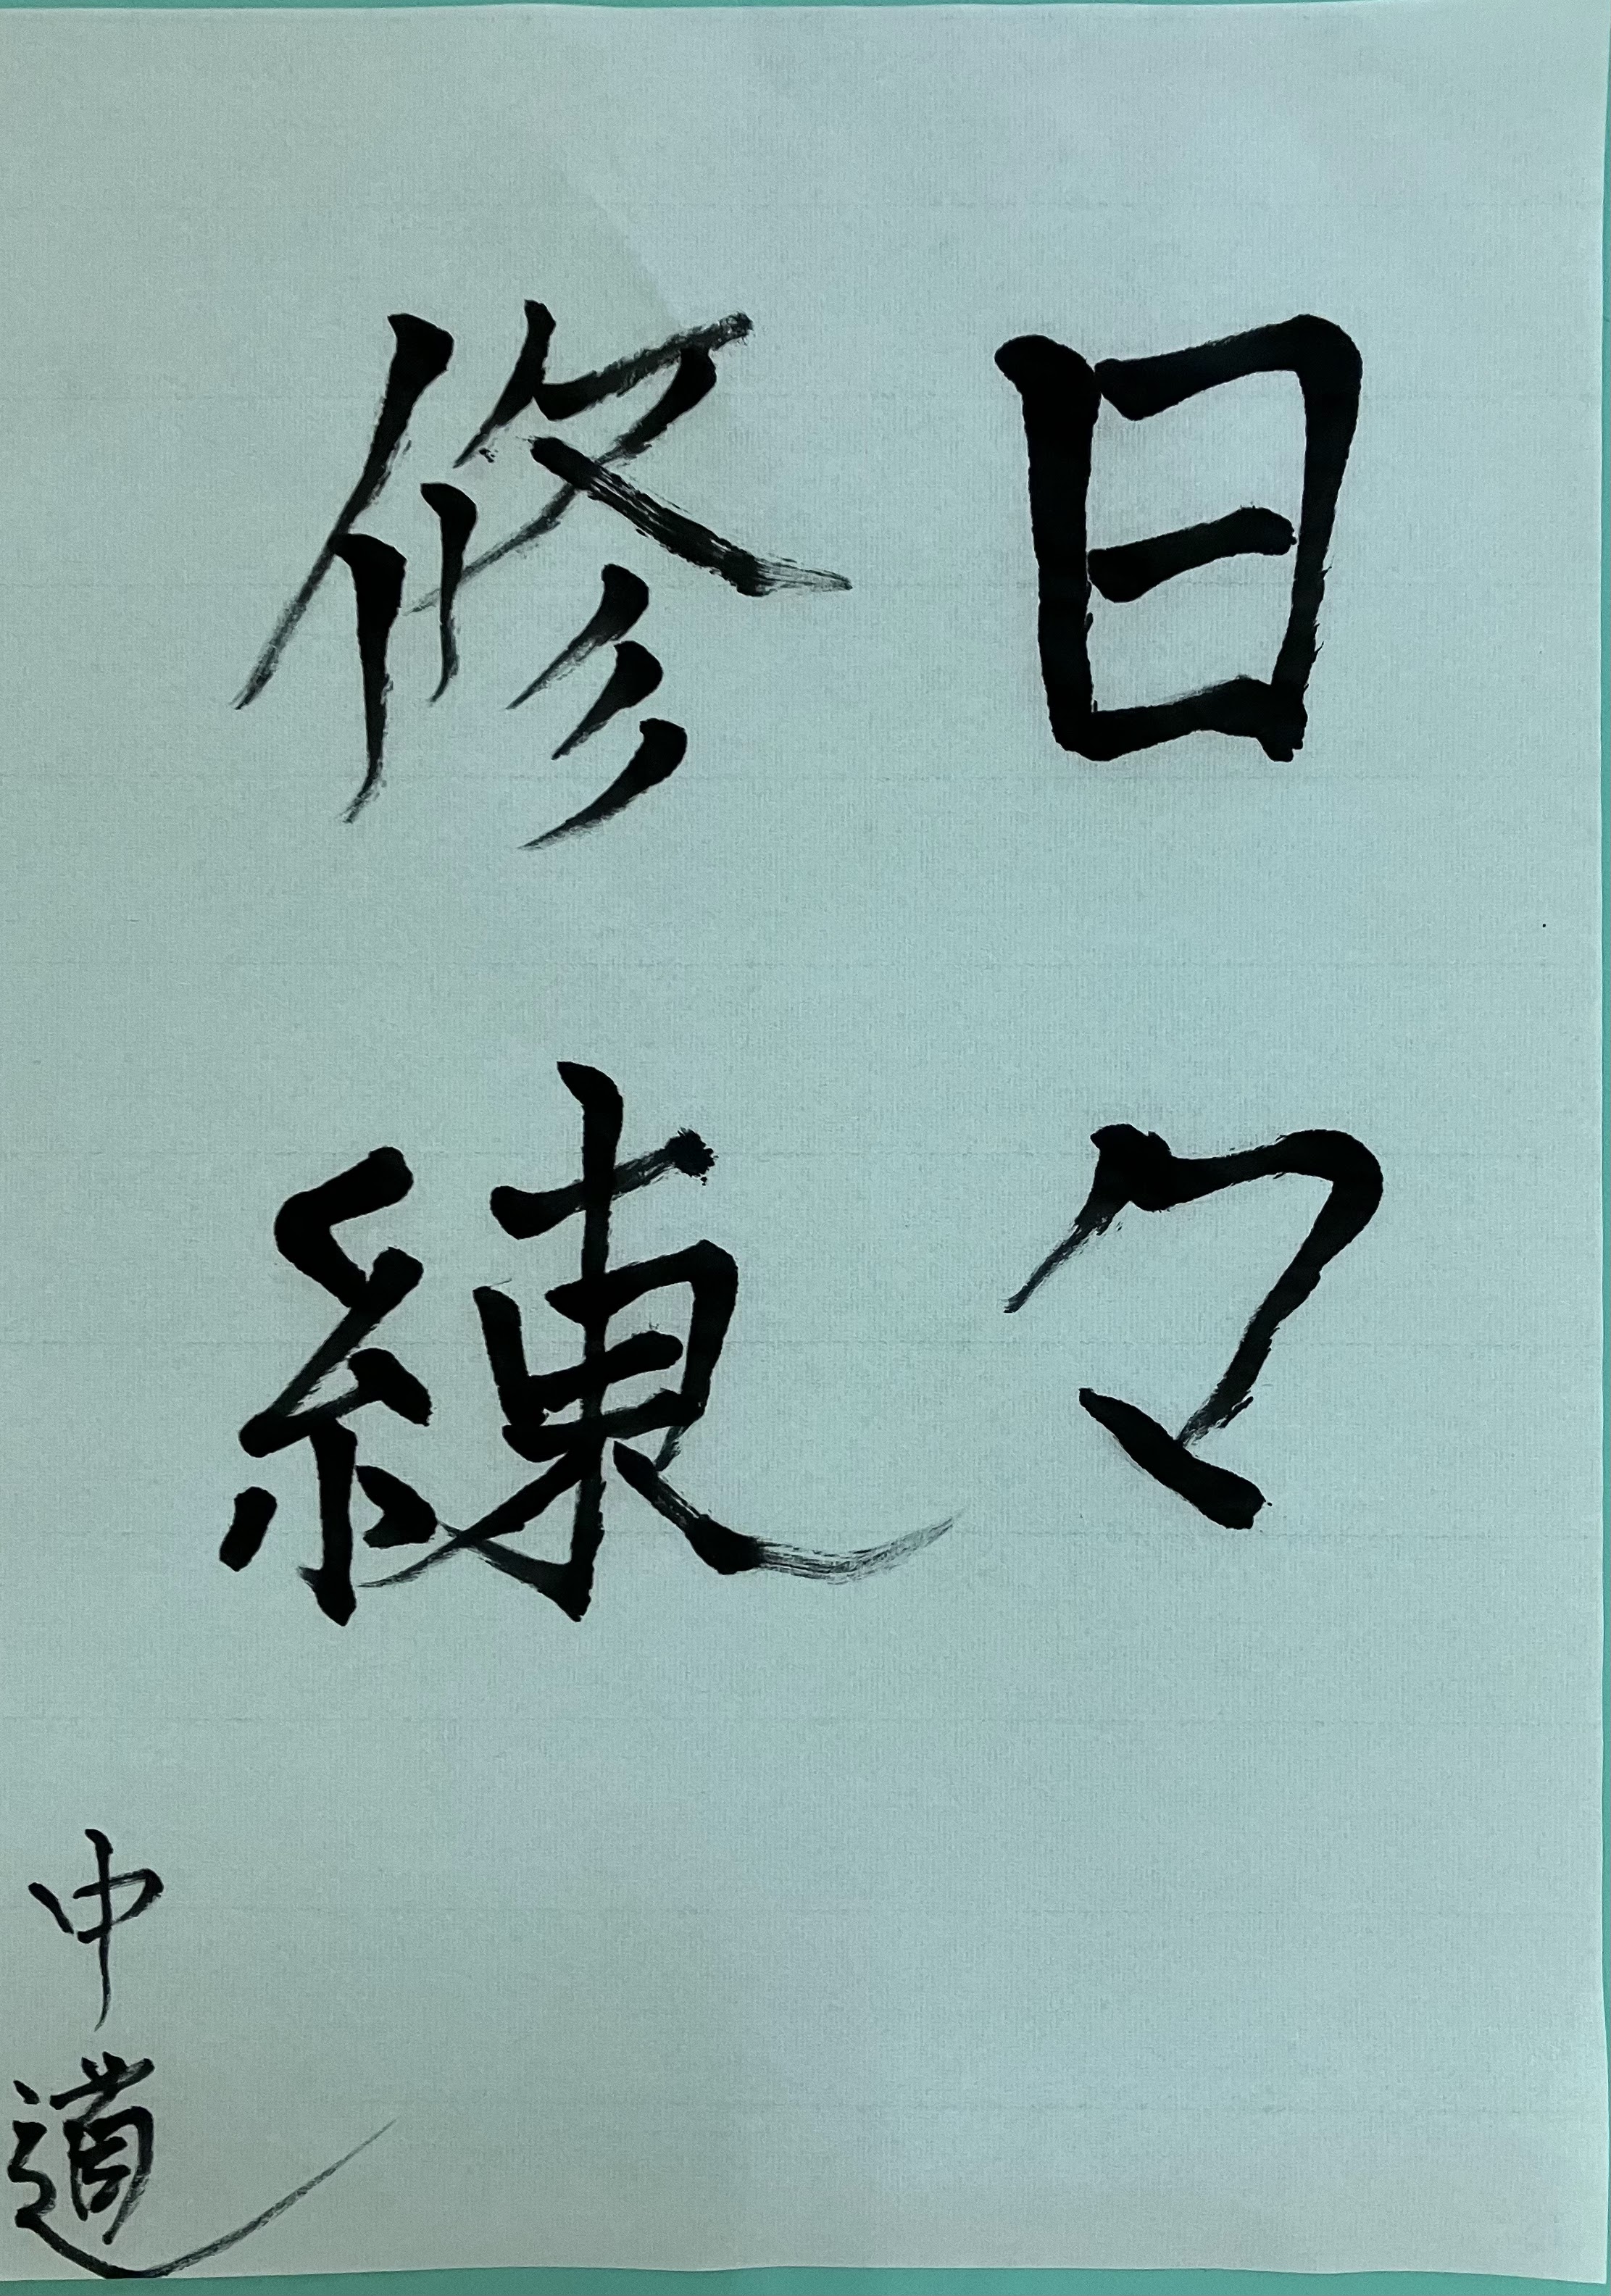 日々
修練
中道